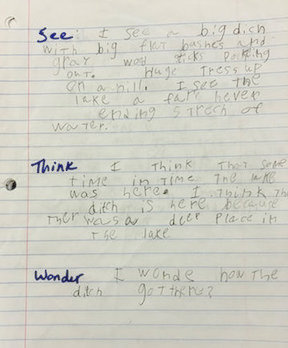 See: I see a big dich
with big flat bashes and
gray wod sticks poking
out. Huge tress up
on a hill. I see the
lake a fare never
ending strech of
water.
Think I think that some
time in time the lake
was here. I think the
ditch is here because
ther was a deep place in
the lake
Wonder I wonde how the
ditch got there?